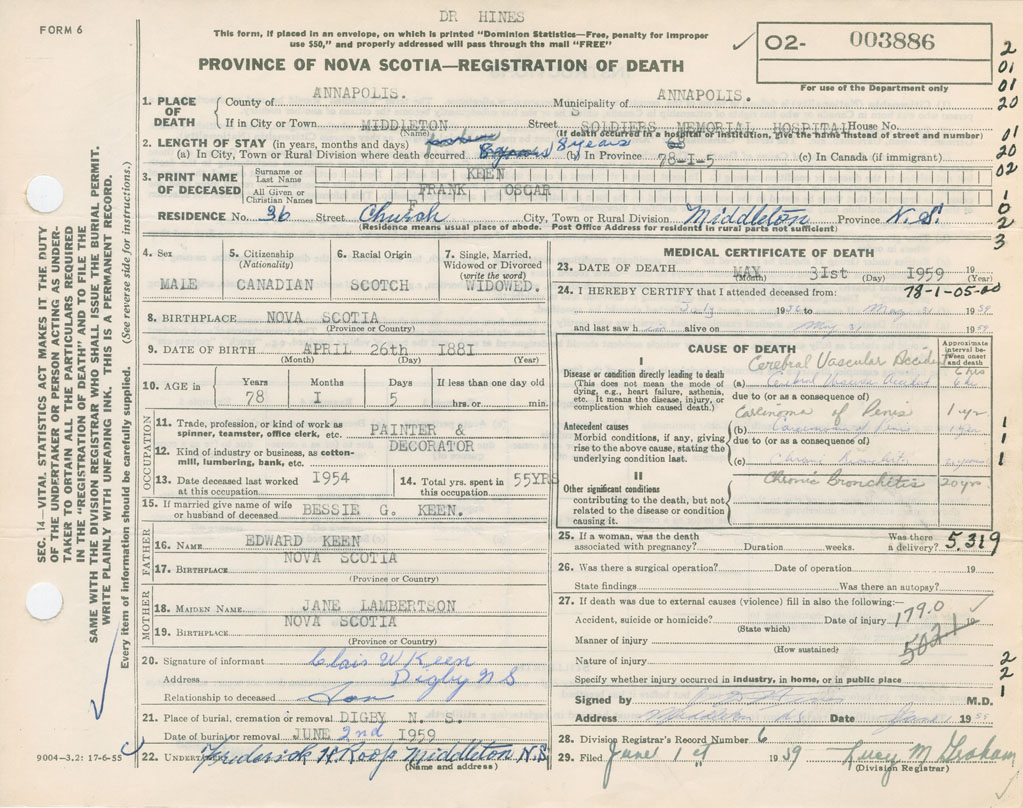 DR HINES
FORM 6
This form, if placed in an envelope, on which is printed "Dominion Statistics—Free, penalty for improper
use $50," and properly addressed will pass through the mail "FREE"
PROVINCE OF NOVA SCOTIA—REGISTRATION OF DEATH
02- 003886
For use of the Department only
2
01
01
20
01
20
02
1
0
2
3
1. PLACE OF DEATH
County of ANNAPOLIS. Municipality of ANNAPOLIS.
If in City or Town MIDDLETON Street SOLDIERS MEMORIAL HOSPITAL House No.
(Name) (If death occurred in a hospital or institution, give the name instead of street and number)
2. LENGTH OF STAY (in years, months and days)
(a) In City, Town or Rural Division where death occurred 8 years (b) In Province 78-I-5 (c) In Canada (if immigrant)
3. PRINT NAME OF DECEASED
Surname or Last Name KEEN
All Given or Christian Names FRANK OSCAR
RESIDENCE No. 36 Street Church City, Town or Rural Division Middleton Province N.S.
(Residence means usual place of abode. Post Office Address for residents in rural parts not sufficient)
4. Sex
MALE
5. Citizenship
(Nationality)
CANADIAN
6. Racial Origin
SCOTCH
7. Single, Married, Widowed or Divorced
(write the word)
WIDOWED.
8. BIRTHPLACE NOVA SCOTIA
(Province or Country)
9. DATE OF BIRTH APRIL 26th 1881
(Month) (Day) (Year)
10. AGE in
Years Months Days If less than one day old
78 I 5 hrs. or min.
OCCUPATION
11. Trade, profession, or kind of work as
spinner, teamster, office clerk, etc. PAINTER &
DECORATOR
12. Kind of industry or business, as cotton-
mill, lumbering, bank, etc.
13. Date deceased last worked
at this occupation I954
14. Total yrs. spent in
this occupation 55YRS
15. If married give name of wife
or husband of deceased BESSIE G. KEEN.
FATHER
16. NAME EDWARD KEEN
17. BIRTHPLACE NOVA SCOTIA
(Province or Country)
MOTHER
18. MAIDEN NAME JANE LAMBERTSON
19. BIRTHPLACE NOVA SCOTIA
(Province or Country)
20. Signature of informant Clair W Keen
Address Digby N S
Relationship to deceased Son
21. Place of burial, cremation or removal DIGBY N. S.
Date of burial or removal JUNE 2nd 1959
22. UNDERTAKER Frederick W. Roop Middleton N.S.
(Name and address)
MEDICAL CERTIFICATE OF DEATH
23. DATE OF DEATH MAY 31st I959 19
(Month) (Day) (Year)
24. I HEREBY CERTIFY that I attended deceased from: 78-1-05-00
July 19 to May 31 19 59
and last saw him alive on May 31 19 59
CAUSE OF DEATH
Approximate interval between onset and death
I
Disease or condition directly leading to death
(This does not mean the mode of
dying, e.g., heart failure, asthenia,
etc. It means the disease, injury, or
complication which caused death.)
Cerebral Vascular Accident 6 hrs
(a) Cerebral Vascular Accident 6 hr
due to (or as a consequence of)
Antecedent causes
Morbid conditions, if any, giving
rise to the above cause, stating the
underlying condition last.
Carcinoma of Penis 1 yr
(b) Carcinoma of Penis 1 year
due to (or as a consequence of)
(c) Chronic Bronchitis
II
Other significant conditions
contributing to the death, but not
related to the disease or condition
causing it.
Chronic Bronchitis 20 yrs
1
1
1
25. If a woman, was the death
associated with pregnancy? Duration weeks. Was there a delivery? 5.319
26. Was there a surgical operation? Date of operation 19
State findings Was there an autopsy?
27. If death was due to external causes (violence) fill in also the following:
Accident, suicide or homicide? Date of injury 19
(State which)
179.0
Manner of injury
(How sustained)
5021
Nature of injury
Specify whether injury occurred in industry, in home, or in public place
2
2
1
Signed by M.D.
Address Middleton N.S. Date June 1 19
28. Division Registrar's Record Number 6
29. Filed June 1st 19 59 Lucy M. Graham
(Division Registrar)
SEC. 14—VITAL STATISTICS ACT MAKES IT THE DUTY
OF THE UNDERTAKER OR PERSON ACTING AS UNDER-
TAKER TO OBTAIN ALL THE PARTICULARS REQUIRED
IN THE "REGISTRATION OF DEATH" AND TO FILE THE
SAME WITH THE DIVISION REGISTRAR WHO SHALL ISSUE THE BURIAL PERMIT.
WRITE PLAINLY WITH UNFADING INK. THIS IS A PERMANENT RECORD.
Every item of information should be carefully supplied. (See reverse side for instructions.)
9004—3.2: 17-6-55